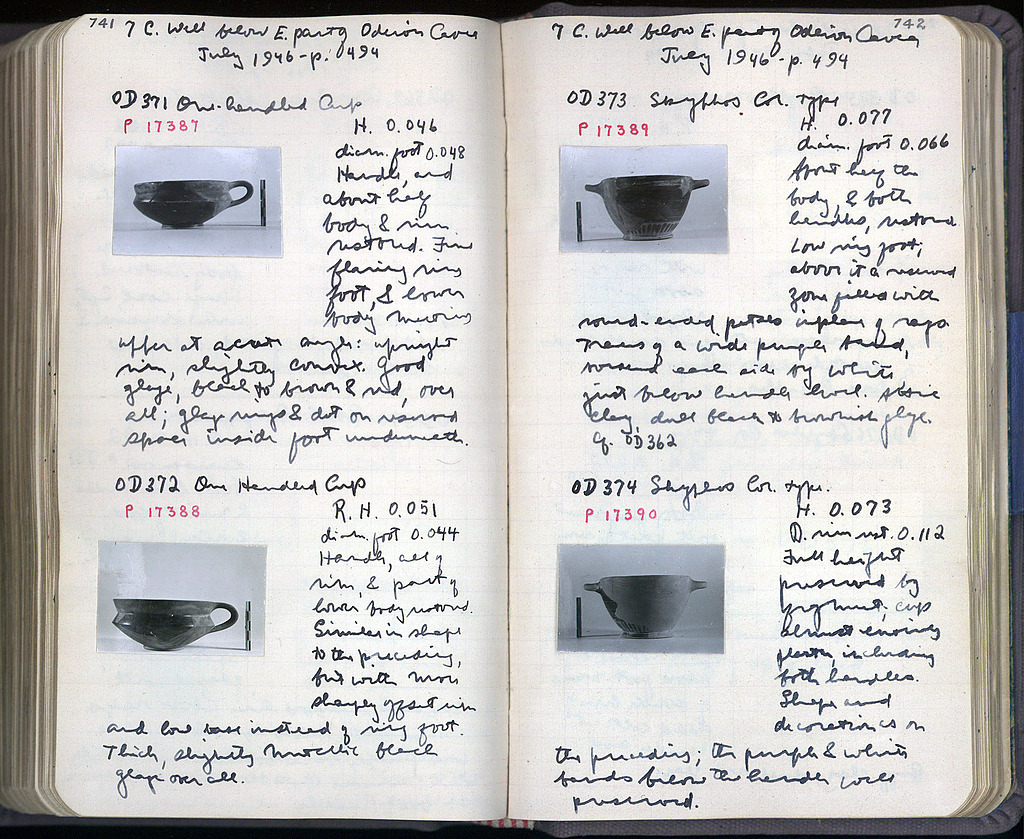 741
7 C. Well below E. part of Odeion Cavea
July 1946 - p. 494
OD371 One-handled Cup
P 17387
H. 0.046
diam. foot 0.048
Handle, and
about half
body & rim
restored. Fine
flaring ring
foot, & lower
body meeting
upper at acute angle: upright
rim, slightly convex. Good
glaze, black to brown & red, over
all; glaze rings & dot on reserved
space inside foot underneath.
OD372 One Handled Cup
P 17388
R. H. 0.051
diam. foot 0.044
Handle, all of
rim, & part of
lower body restored.
Similar in shape
to the preceding,
but with more
sharply offset rim
and low base instead of ring foot.
Thick, slightly metallic black
glaze over all.
742
7 C. Well below E. part of Odeion Cavea
July 1946 - p. 494
OD373 Skyphos Cor. type
P 17389
H. 0.077
diam. foot 0.066
About half the
body, & both
handles, restored.
Low ring foot;
above it a reserved
zone filled with
round-ended petals in place of rays.
Traces of a wide purple band,
versed each side by white
just below handle level. Attic
clay, dull black to brownish glaze.
Cf. OD362
OD374 Skyphos Cor. type.
P 17390
H. 0.073
D. rim rest. 0.112
Full height
preserved by
fragment; cup
almost entirely
plaster, including
both handles.
Shape and
decoration as in
the preceding; the purple & white
bands below the handle well
preserved.